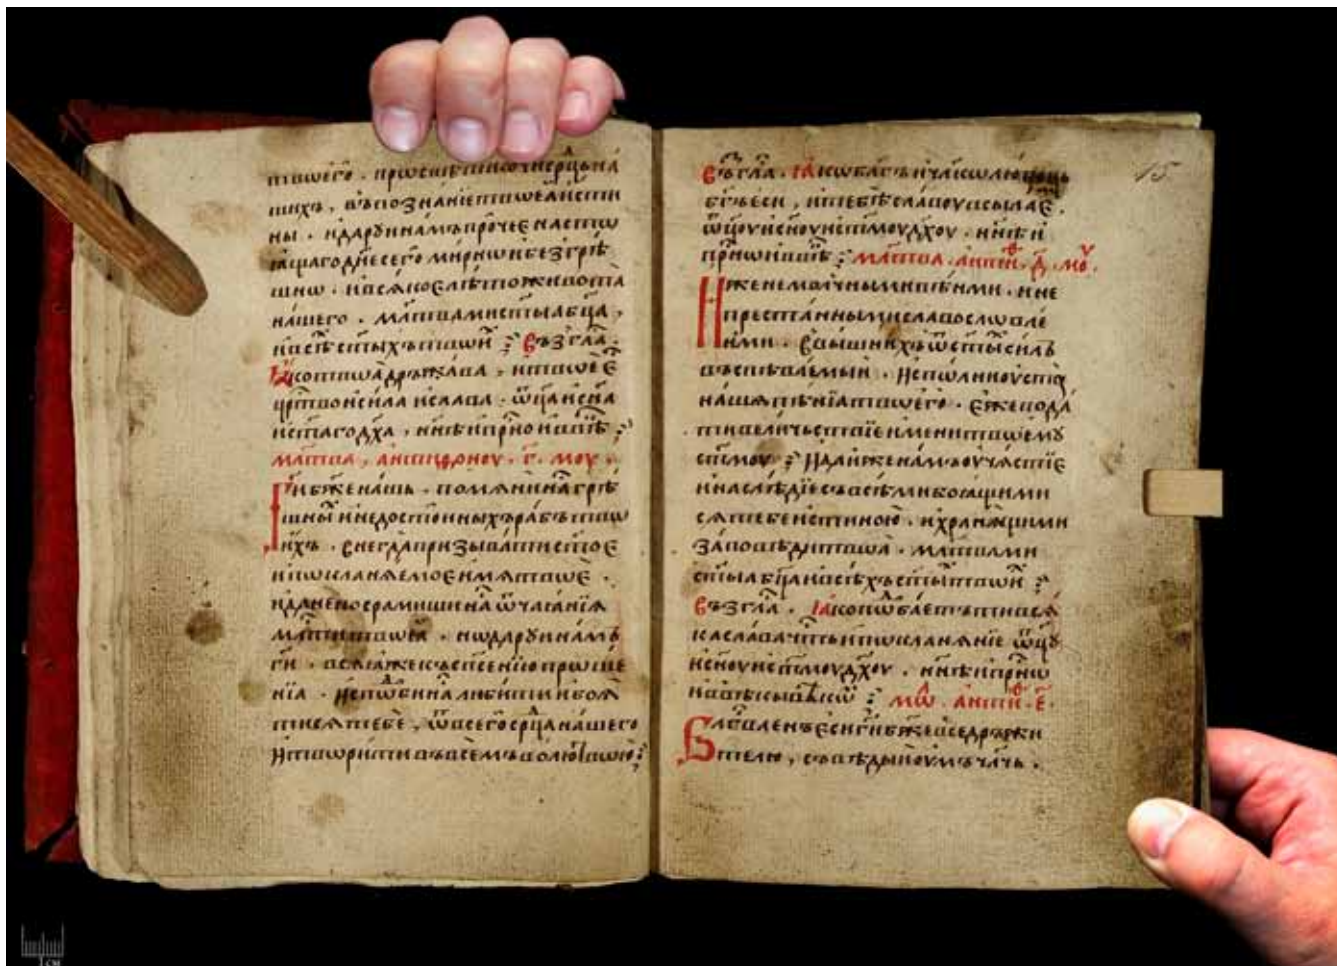 твоего . просвѣти ѡчи ср҃дца на
шихъ , въ познанїе твоеѧ исти
ны . и даруи намъ прочее насто
ѧщаго дн҃е сего мирно и без грѣ
шно . и всѧкое лѣто живота
нашего . мл҃твами ст҃ыа бц҃а ,
и всѣ ст҃ыхъ твои ⁘ Възгла .
Ꙗко твоа дръжава , и твое е
црⷭ҇тво и сила и слава . ѿц҃а и сн҃а
и ст҃аго дх҃а , нн҃ѣ и прⷭ҇но и в вѣ ⁘
Мл҃тва , антифоноу . г҃ . моу .
Ги҃ бж҃е нашь . помѧни на грѣ
шны и недостоиныхъ рабъ тво
ихъ . внегда призывати ст҃ое
и покланѧемое имѧ твое .
и да не посрамиши на ѿ чаанїѧ
млⷭ҇ти твоеѧ . но даруи намъ
ги҃ . всѧ ꙗже къ сп҃сенїю проше
нїа . и спⷣоби на любити и боѧ
тисѧ тебе , ѿ всего срⷣца нашего
и творити въ всемъ волю твою ⁘
15
Възгла . Ꙗко бл҃гъ и чл҃колюбець
бг҃ъ еси , и тебѣ славоу всылае .
ѿц҃оу и сн҃оу и ст҃моу дх҃оу . нн҃ѣ и
прⷭ҇но и в вѣ ⁘ Мл҃тва . антиⷴ . д҃ . моу .
Иже немолчными пѣнми . и не
престанными славословле
нїими . в вышнихъ ѿ ст҃ы силь
въспѣваемыи . исполни оуста
наша пѣнїа твоего . еже пода
ти величьствїе имени твоемꙋ
ст҃моу ⁘ И даиже намъ оучастїе
и наслѣдїе съ всѣми боѧщими
сѧ тебе истиною . и хранѧщими
заповѣди твоа . мл҃твами
ст҃ыа бц҃а и всѣхъ ст҃ы твои ⁘
Възгла . Ꙗко подⷪбаетъ ти всѧ
ка слава чⷭ҇ть и покланѧнїе ѿц҃у
и сн҃оу и ст҃моу дх҃оу . нн҃ѣ и прⷭ҇но
и в вѣкы вѣкѡ ⁘ Мл҃ѡ . антиⷴ . е҃ .
Блⷭ҇вленъ еси ги҃ бж҃е вседръжи
телю , съвѣдыи оумъ члчь .
1 см